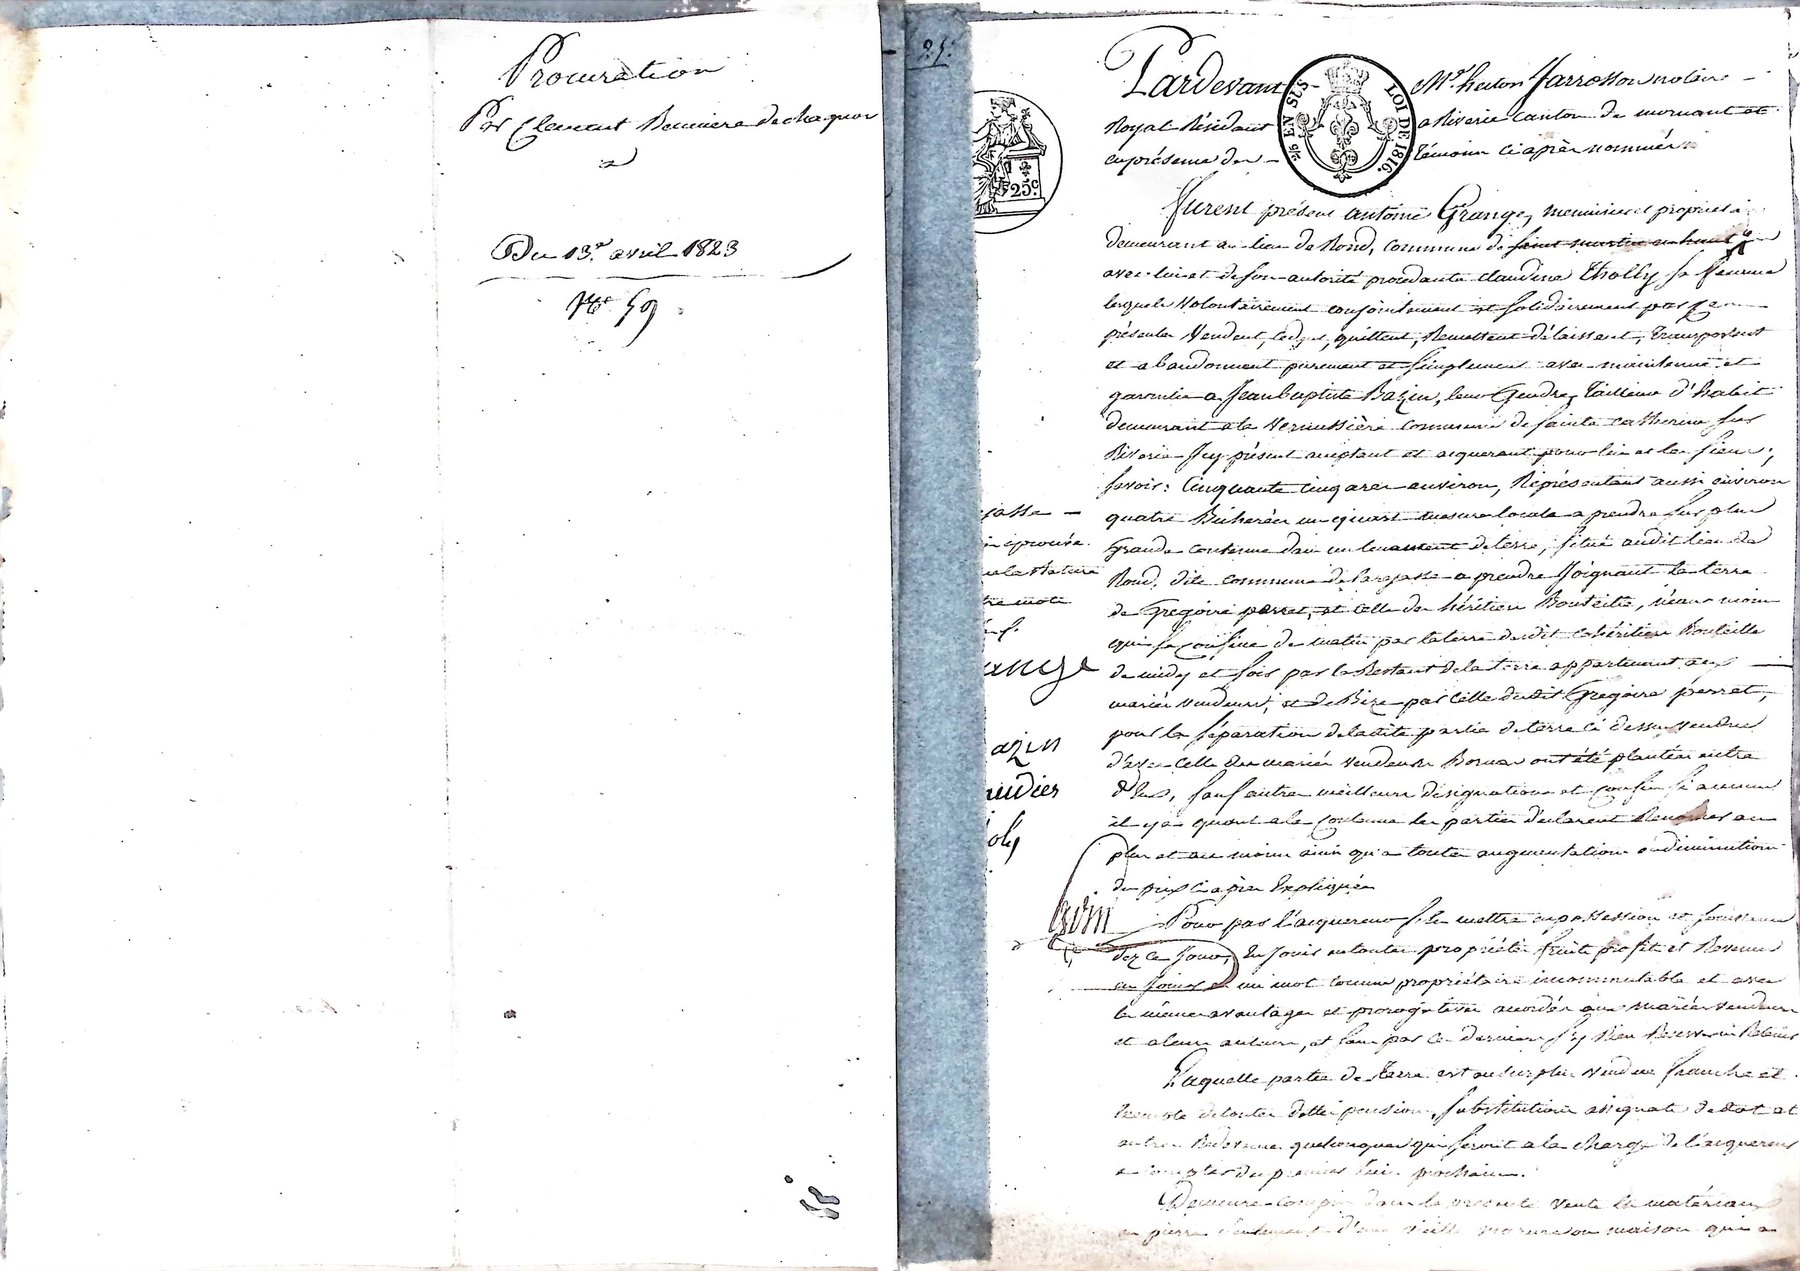 Procuration
Par Clement Bemiere de chaquor
a
Du 13.e avril 1823
N.e 59
25.
EN SUS
LOI DE 1816.
25.c
Pardevant Me. hector Jarrosson notaire
Royal Résidant a Riverie canton de mornant et
en présence des témoins ci après nommés
Furent présent antoine Grange, menuisier et propriétaire
demeurant au lieu de Rond, commune de saint martin en haut
avec lui et de son autorité procédante claudine Tholly sa femme
lesquels volontairement conjointement et solidairement par ces
présentes Vendent, cedent, quittent, Remettent délaissent, transportent
et abandonnent purement et simplement avec maintenue et
garantie a Jean baptiste Bazin, leur Gendre, Tailleur d'habit
demeurant a la Vernussière commune de sainte catherine sur
Riverie Icy présent acceptant et acquerant pour lui et les siens,
savoir: Cinquante cinq ares environ, Représentant aussi environ
quatre Bicherées un quart mesure locale a prendre sur plus
Grande contenue dans un tenement de terre, situé audit lieu de
Rond, dite commune de larajasse a prendre Joignant la terre
de Gregoire perret, et celle des héritiers Bouteille,
qui se confine de matin par la terre desdits héritiers Bouteille
de midy et soir par le Restant de la terre appartenant aux
mariés vendeurs, et de Bize par celle dudit Gregoire perret,
pour la séparation de ladite partie de terre ci dessus vendue
d'avec celle des mariés vendeurs Bornes ont été plantées entre
d'Eux, sauf autre meilleure désignation et confin si aucun
il y a quant a la Contenue les parties déclarent Renoncer au
plus et au moins ainsi qu'a toute augmentation ou diminution
du prix ci après Expliqué
Pour par l'acquereur s'en mettre en possession et jouissance
dez ce Jour, En Jouir en toute propriété fruits profits et Revenus
en Jouir en un mot comme propriétaire incommutable et avec
les mêmes avantages et prérogatives accordés aux mariés vendeurs
et a leurs auteurs, et sans par ces derniers s'y Rien Reserver ni Retenir
Laquelle partie de Terre est au surplus vendue franche et
exempte de toutes dettes pension, substitution assignats de dot et
autres Redevance quelconques qui seroit a la charge de l'acquereur
a compter du premier prochain.
Demeure compris dans la presente vente les matériaux
en pierre seulement d'une Vieille masure ou maison qui a
jasse
approuvée
la rature
tre mots
ange
azin
audier
oly